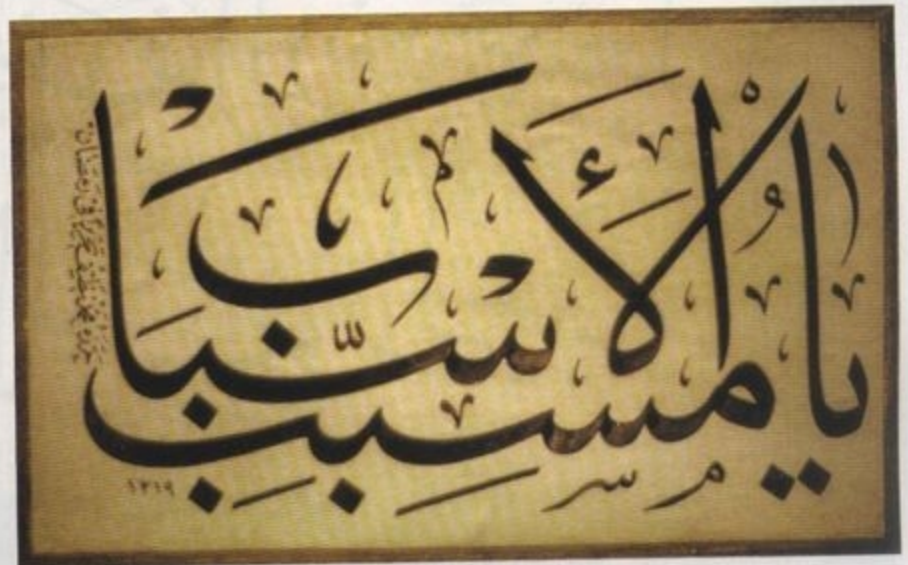 يا مُسَبِّبَ الأَسْبَاب
١٣١٩